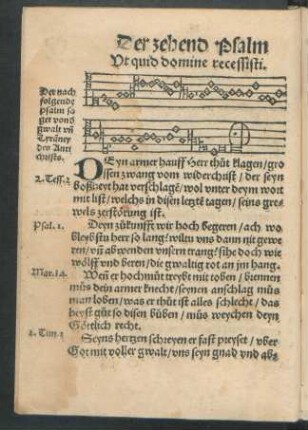 Der zehend Psalm
Vt quid domine recessisti.
Der nach
folgende
psalm sa
get vons
gwalt vñ
Tyraney
des Anti
christs.
DEyn armer hauff Herr thůt klagen/ gro
ssen zwang vom widerchrist/ der seyn
boßheyt hat verschlagē/ wol vnter deym wort
mit list/ welchs in disen letztē tagen/ seins gre-
wels zerstörung ist.
2. Tess. 2
Deyn zůkunfft wir hoch begeren/ ach wo
bleybstu herr so lang! wiltu vns dann nit gewe
ren/ vñ abwenden vnsern trang! sihe doch wie
wölff vnd beren/ die gwaltig rot an jm hang.
Psal. 1.
Weñ er hochmůt treybt mit toben/ brennen
můs dein armer knecht/ seynen anschlag můs
man loben/ was er thůt ist alles schlecht/ das
heyst gůt so disen bůben/ můs weychen deyn
Götlich recht.
Mar. 14
Seyns hertzen schreyen er fast preyset/ vber
Got mit voller gwalt/ vns seyn gnad vnd ab-
2. Tim. 3